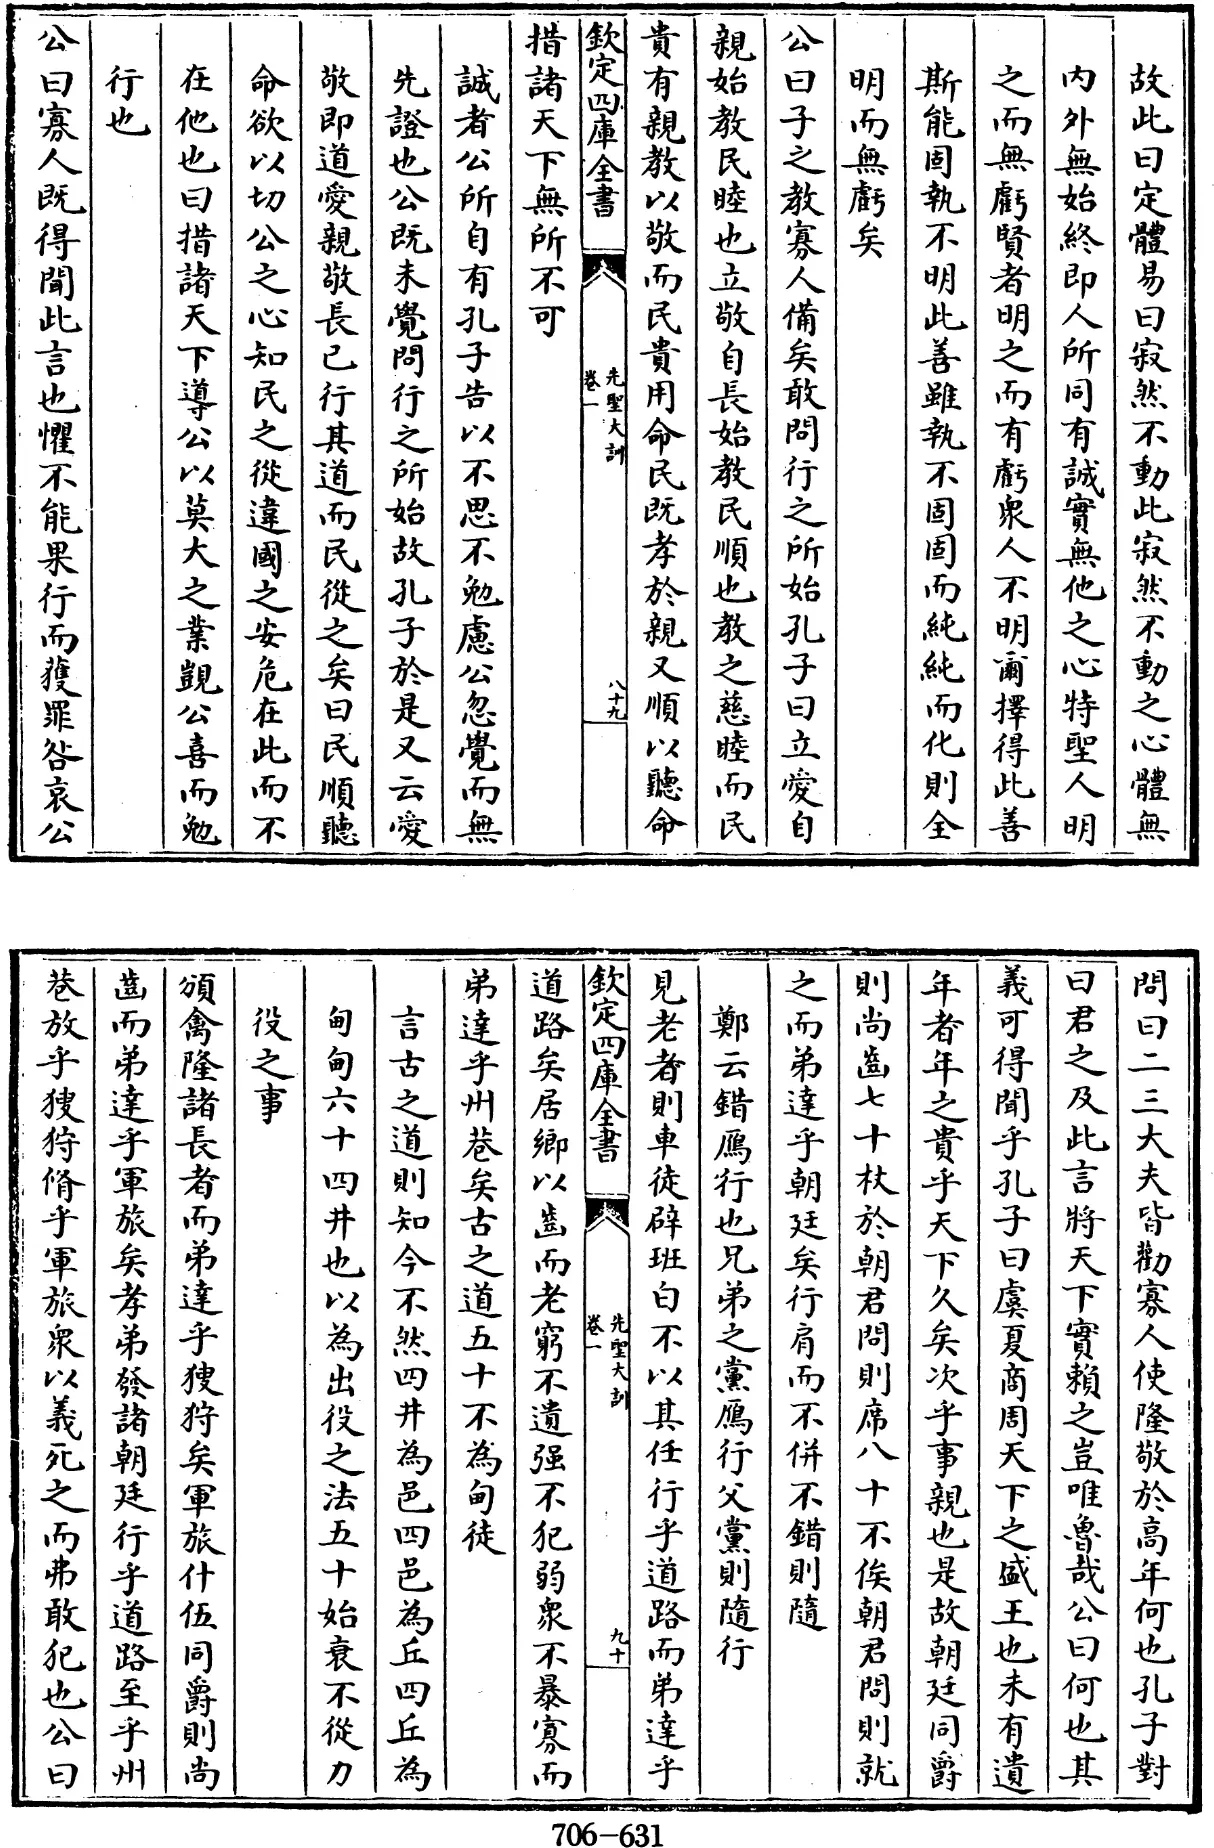 故此曰定體易曰寂然不動此寂然不動之心體無
内外無始終即人所同有誠實無他之心特聖人明
之而無虧賢者明之而有虧衆人不明爾擇得此善
斯能固執不明此善雖執不固固而純純而化則全
明而無虧矣
公曰子之教寡人備矣敢問行之所始孔子曰立愛自
親始教民睦也立敬自長始教民順也教之慈睦而民
貴有親教以敬而民貴用命民既孝於親又順以聽命
欽定四庫全書
先聖大訓
卷一
八十九
措諸天下無所不可
誠者公所自有孔子告以不思不勉慮公忽覺而無
先證也公既未覺問行之所始故孔子於是又云愛
敬即道愛親敬長已行其道而民從之矣曰民順聽
命欲以切公之心知民之從違國之安危在此而不
在他也曰措諸天下導公以莫大之業覬公喜而勉
行也
公曰寡人既得聞此言也懼不能果行而獲罪咎哀公
問曰二三大夫皆勸寡人使隆敬於高年何也孔子對
曰君之及此言將天下實賴之豈唯魯哉公曰何也其
義可得聞乎孔子曰虞夏商周天下之盛王也未有遺
年者年之貴乎天下久矣次乎事親也是故朝廷同爵
則尚齒七十杖於朝君問則席八十不俟朝君問則就
之而弟達乎朝廷矣行肩而不併不錯則隨
鄭云錯鴈行也兄弟之黨鴈行父黨則隨行
見老者則車徒辟班白不以其任行乎道路而弟達乎
欽定四庫全書
先聖大訓
卷一
九十
道路矣居鄉以齒而老窮不遺强不犯弱衆不暴寡而
弟達乎州巷矣古之道五十不為甸徒
言古之道則知今不然四井為邑四邑為丘四丘為
甸甸六十四井也以為出役之法五十始衰不從力
役之事
頒禽隆諸長者而弟達乎獀狩矣軍旅什伍同爵則尚
齒而弟達乎軍旅矣孝弟發諸朝廷行乎道路至乎州
巷放乎獀狩脩乎軍旅衆以義死之而弗敢犯也公曰
706-631